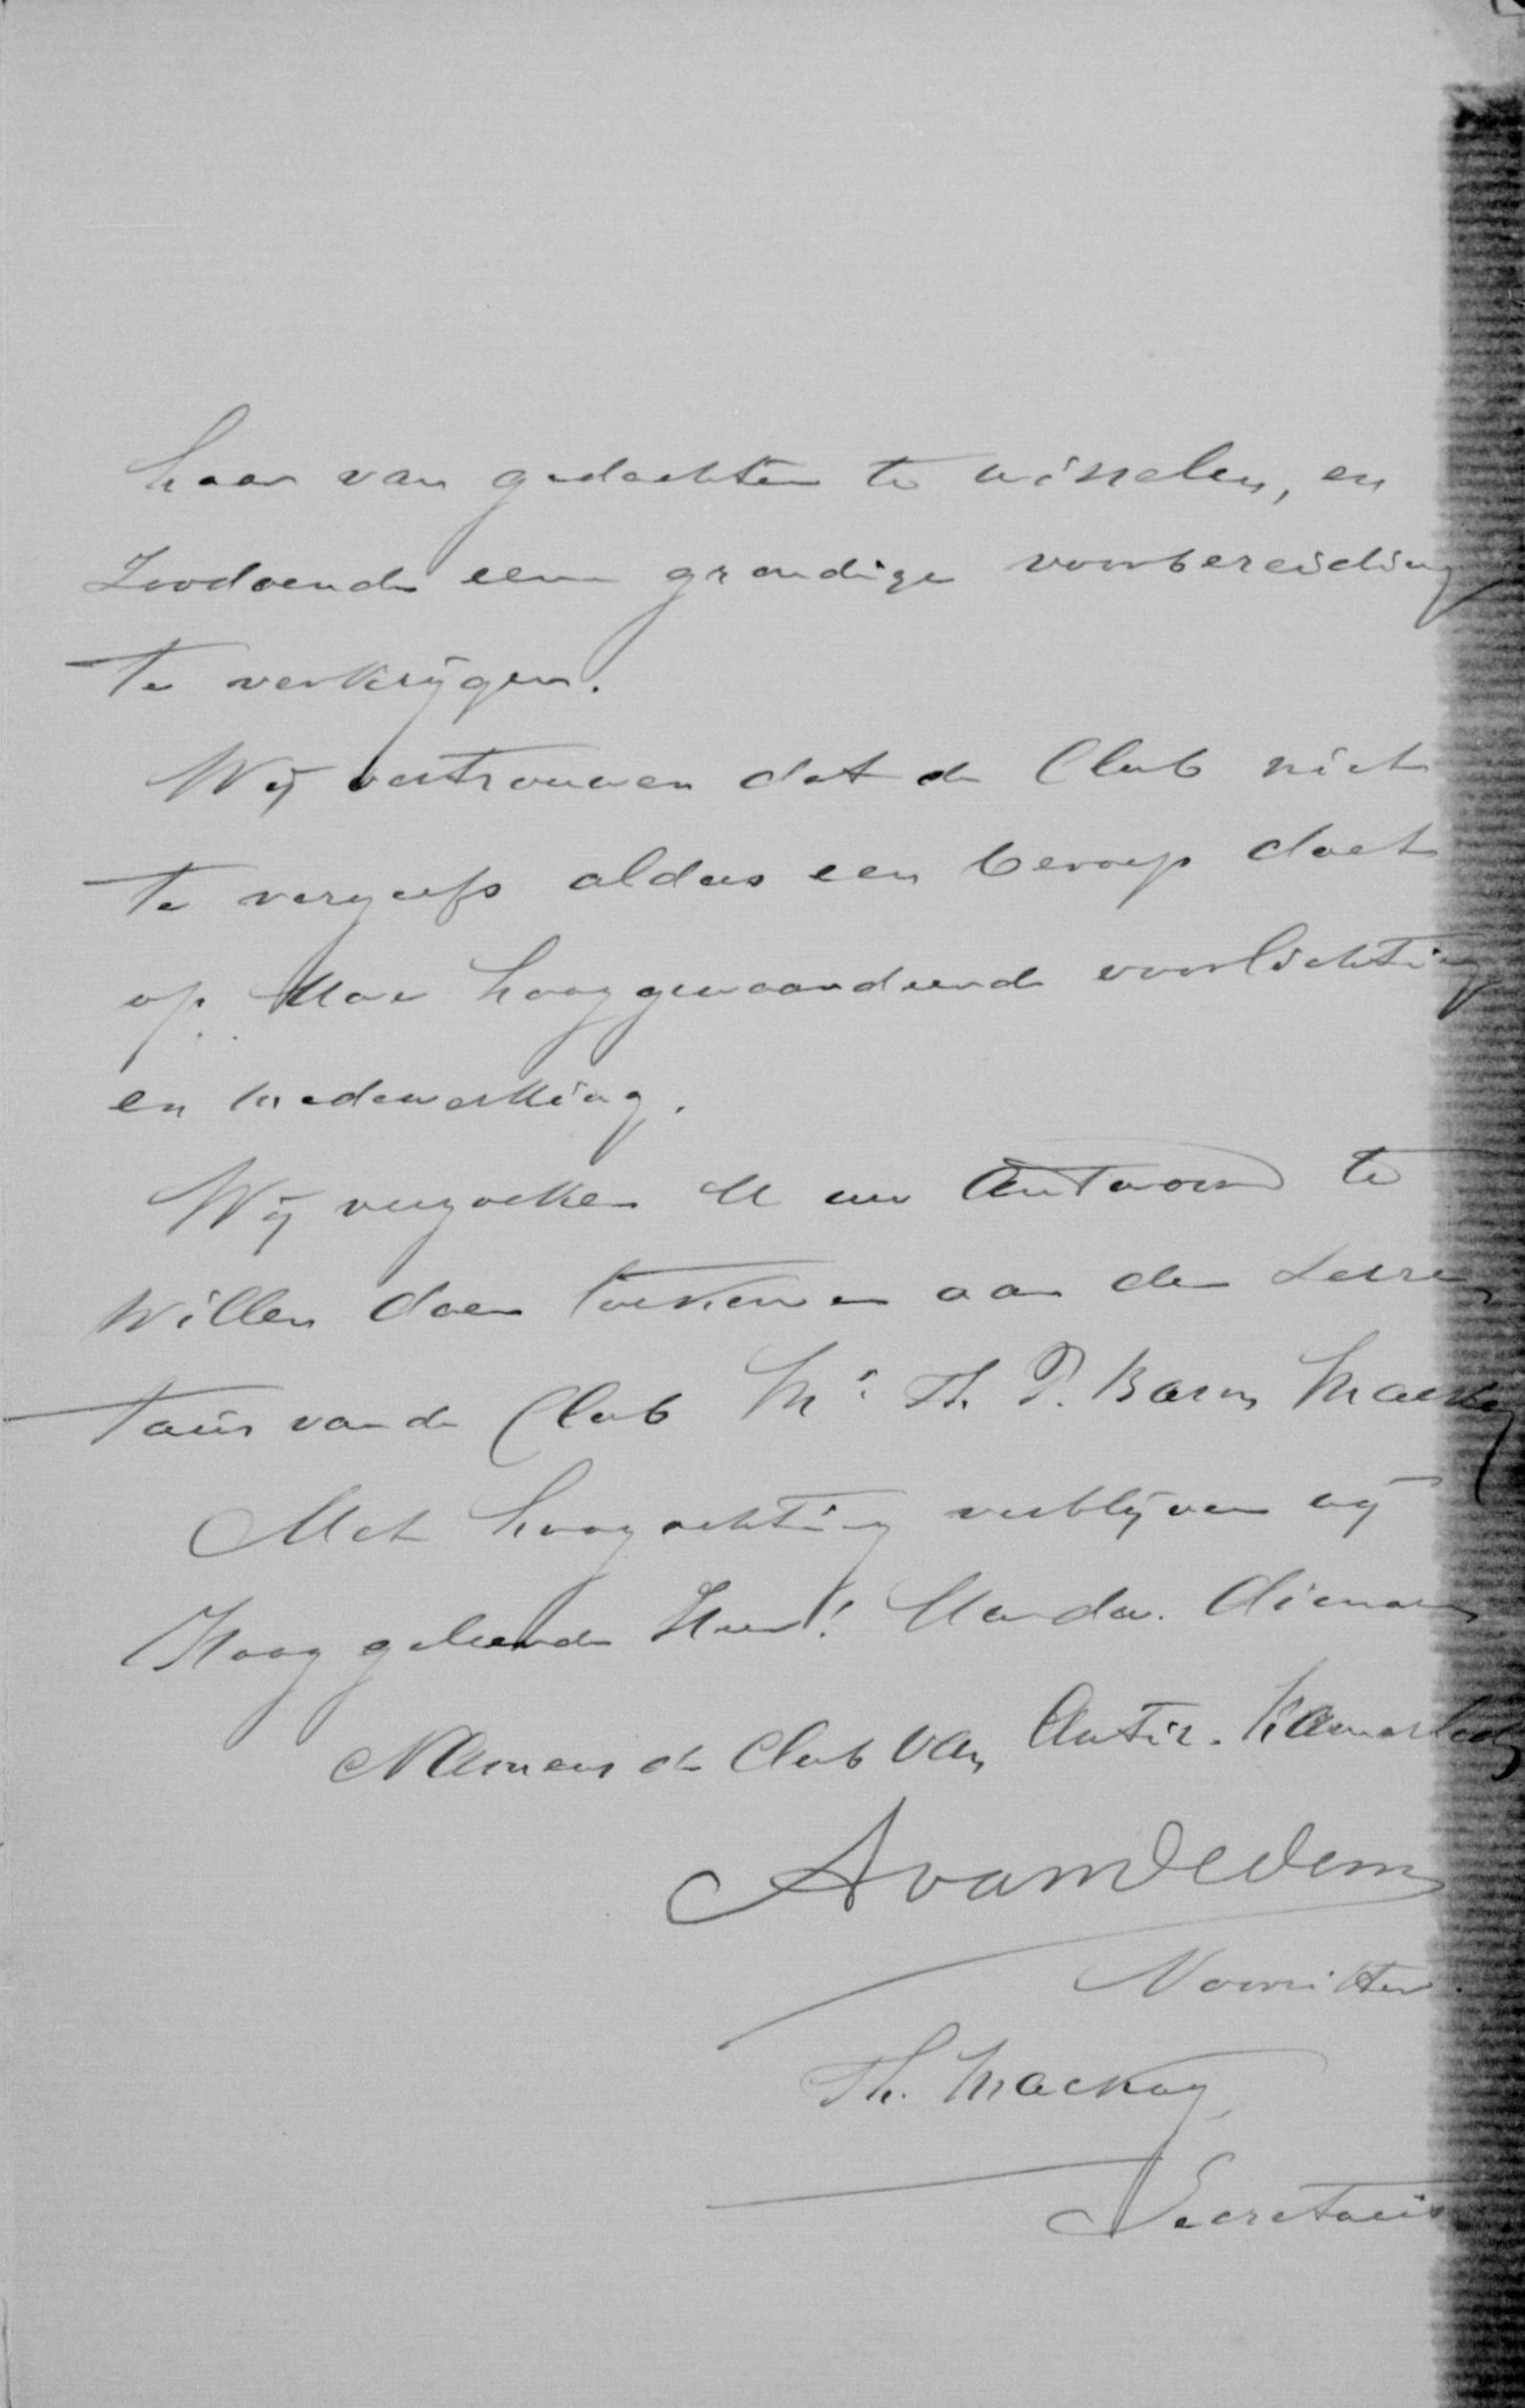 haar van gedachten te wisselen, en
zoodoende eene grondige voorbereiding
te verkrijgen.
Wij vertrouwen dat de Club niet
te vergeefs aldus een beroep doet
op Uwe hooggewaardeerde voorlichting
en medewerking.
Wij verzoeken U uw antwoord te
willen doen toekomen aan den Secre
taris van de Club Mr. Th. P. Baron Mackay
Met hoogachting verblijven wij
Hoog geleerde Heer! Uw dw. dienaren
Namens de Club van Antir. Kamerleden
A van Dedem
Voorzitter.
Th. Mackay,
Secretaris